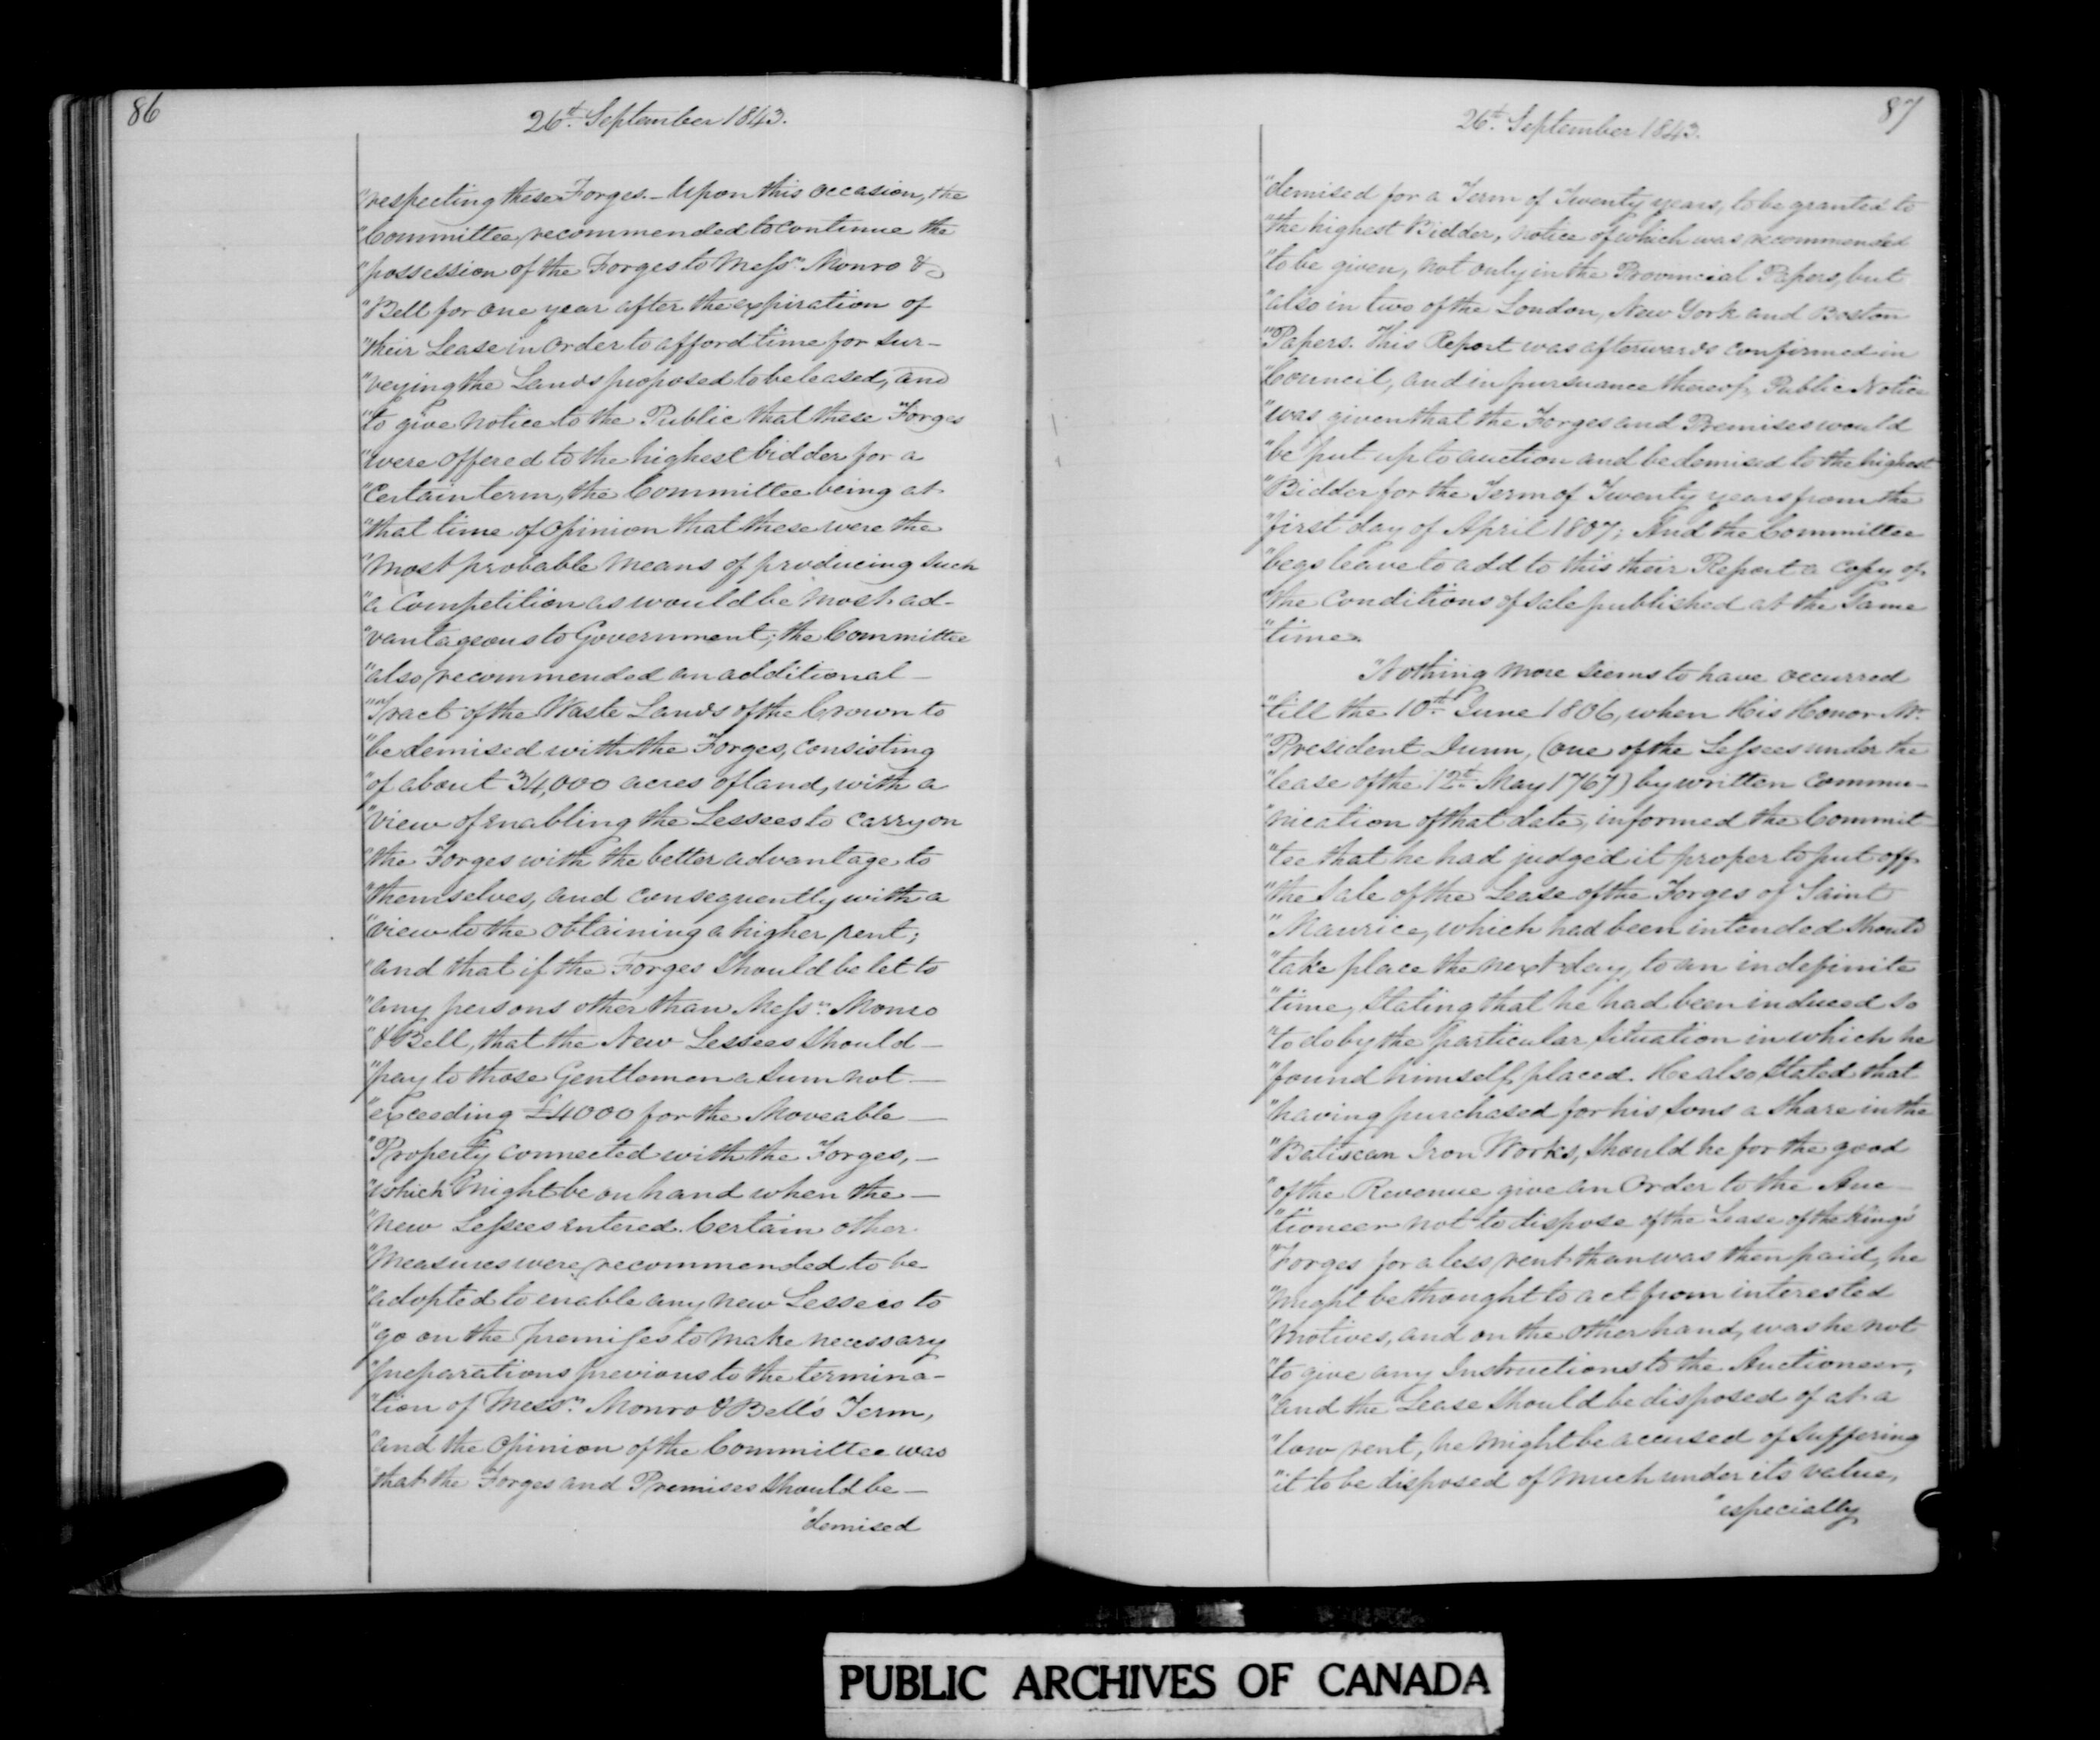 86
26th September 1843.
"respecting these Forges. – Upon this occasion, the
"Committee recommended to continue the
"possession of the Forges to Messrs. Monro &
"Bell for one year after the expiration of
"their Lease in order to afford time for sur-
"veying the Lands proposed to be leased, and
"to give notice to the Public that these Forges
"were offered to the highest bidder for a
"certain term, the Committee being at
"that time of opinion that these were the
"most probable means of producing such
"a Competition as would be most ad-
"vantageous to Government; the Committee
"also recommended an additional –
"Tract of the Waste Lands of the Crown to
"be demised with the Forges, consisting
"of about 34,000 acres of land, with a
"view of enabling the Lessees to carry on
"the Forges with the better advantage to
"themselves, and consequently with a
"view to the obtaining a higher rent;
"and that if the Forges should be let to
"any persons other than Messrs. Monro
"& Bell, that the New Lessees should –
"pay to those Gentlemen a Sum not –
"exceeding £4000 for the Moveable –
"Property connected with the Forges, –
"which might be on hand when the –
"new Lessees entered. Certain other
"Measures were recommended to be
"adopted to enable any new Lessees to
"go on the premises to make necessary
"preparations previous to the termina-
"tion of Messrs. Monro & Bell's Term,
"and the Opinion of the Committee was
"that the Forges and Premises should be –
"demised
87
26th September 1843.
"demised for a Term of Twenty years, to be granted to
"the highest Bidder, notice of which was recommended
"to be given, not only in the Provincial Papers, but
"also in two of the London, New York and Boston
"Papers. This Report was afterwards confirmed in
"Council, and in pursuance thereof, Public Notice
"was given that the Forges and Premises would
"be put up to auction and be demised to the highest
"Bidder for the Term of Twenty years from the
"first day of April 1807; And the Committee
"begs leave to add to this their Report a Copy of
"the Conditions of sale published at the same
"time.
"Nothing more seems to have occurred
"till the 10th June 1806, when His Honor Mr.
"President Dunn, (one of the Lessees under the
"lease of the 12th May 1767) by written Commu-
"nication of that date, informed the Commit-
"tee that he had judged it proper to put off
"the Sale of the Lease of the Forges of Saint
"Maurice, which had been intended should
"take place the next day, to an indefinite
"time, stating that he had been induced so
"to do by the particular situation in which he
"found himself placed. He also stated that
"having purchased for his Sons a share in the
"Batiscan Iron Works, should he for the good
"of the Revenue give an Order to the Auc-
"tioneer not to dispose of the Lease of the King's
"Forges for a less rent than was then paid, he
"might be thought to act from interested
"motives, and on the other hand, was he not
"to give any Instructions to the Auctioneer,
"and the Lease should be disposed of at a
"low rent, he might be accused of suffering
"it to be disposed of much under its value,
"especially
PUBLIC ARCHIVES OF CANADA